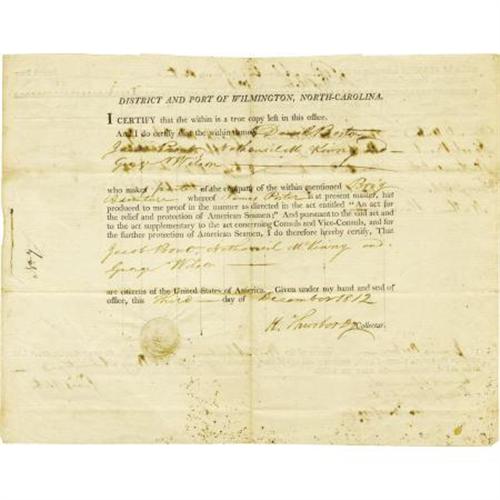 DISTRICT AND PORT OF WILMINGTON, NORTH-CAROLINA.
I CERTIFY that the within is a true copy left in this office.
And I do certify that the within named
Jacob Nathaniel M and
George Wilson
who makes part of the company of the within mentioned Brig
Adventure whereof James is at present master, has
produced to me proof in the manner as directed in the act entitled "An act for
the relief and protection of American Seamen;" And pursuant to the said act and
to the act supplementary to the act concerning Consuls and Vice-Consuls, and for
the further protection of American Seamen, I do therefore hereby certify, That
Jacob Nathaniel and
George Wilson
are citizens of the United States of America. Given under my hand and seal of
office, this Third day of December 1812
Collector.